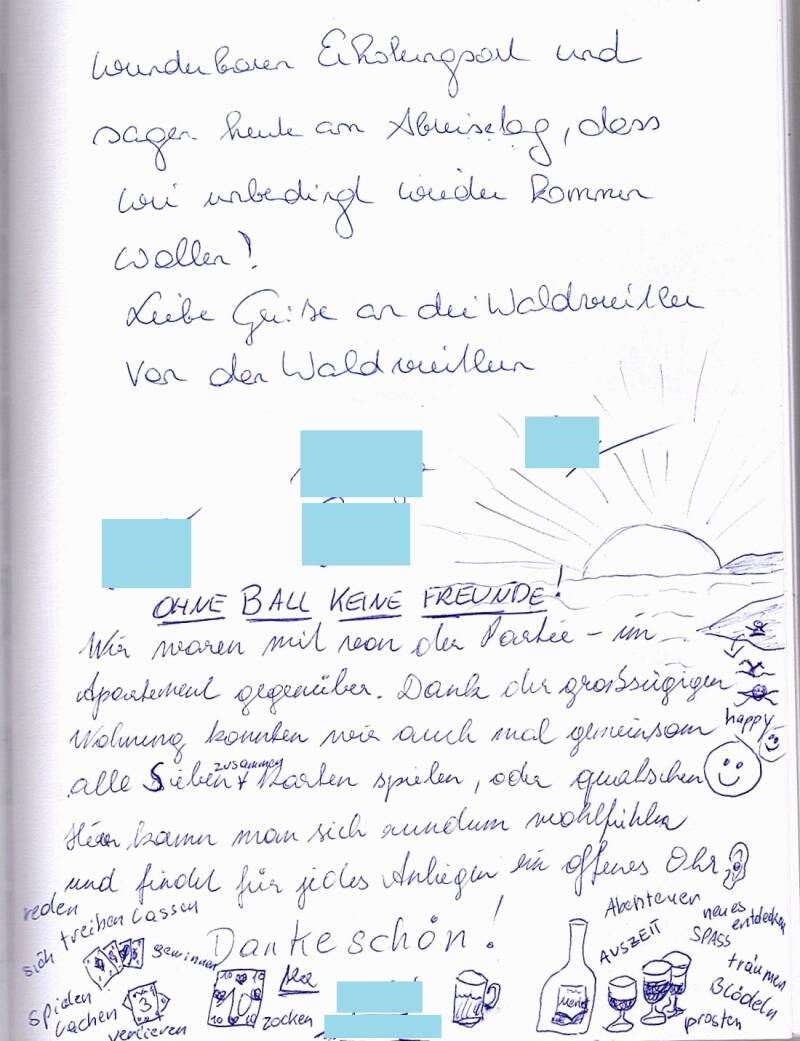 wunderbaren Erholungsort und
sagen heute am Abreisetag, dass
wir unbedingt wieder kommen
wollen!
Liebe Grüße an die Waldmeister
von den Waldmeistern
OHNE BALL KEINE FREUNDE!
Wir waren mit von der Partie – im
Apartement gegenüber. Dank der großzügigen
Wohnung konnten wir auch mal gemeinsam
happy
alle Sieben zusammen Karten spielen, oder quatschen
Hier kann man sich rundum wohlfühlen
und findet für jedes Anliegen ein offenes Ohr,
reden
sich treiben lassen
Dankeschön!
Abenteuer
neues entdecken
gewinnen
AUSZEIT
SPASS
träumen
spielen
lachen
3
verlieren
10
zocken
Blödeln
prosten